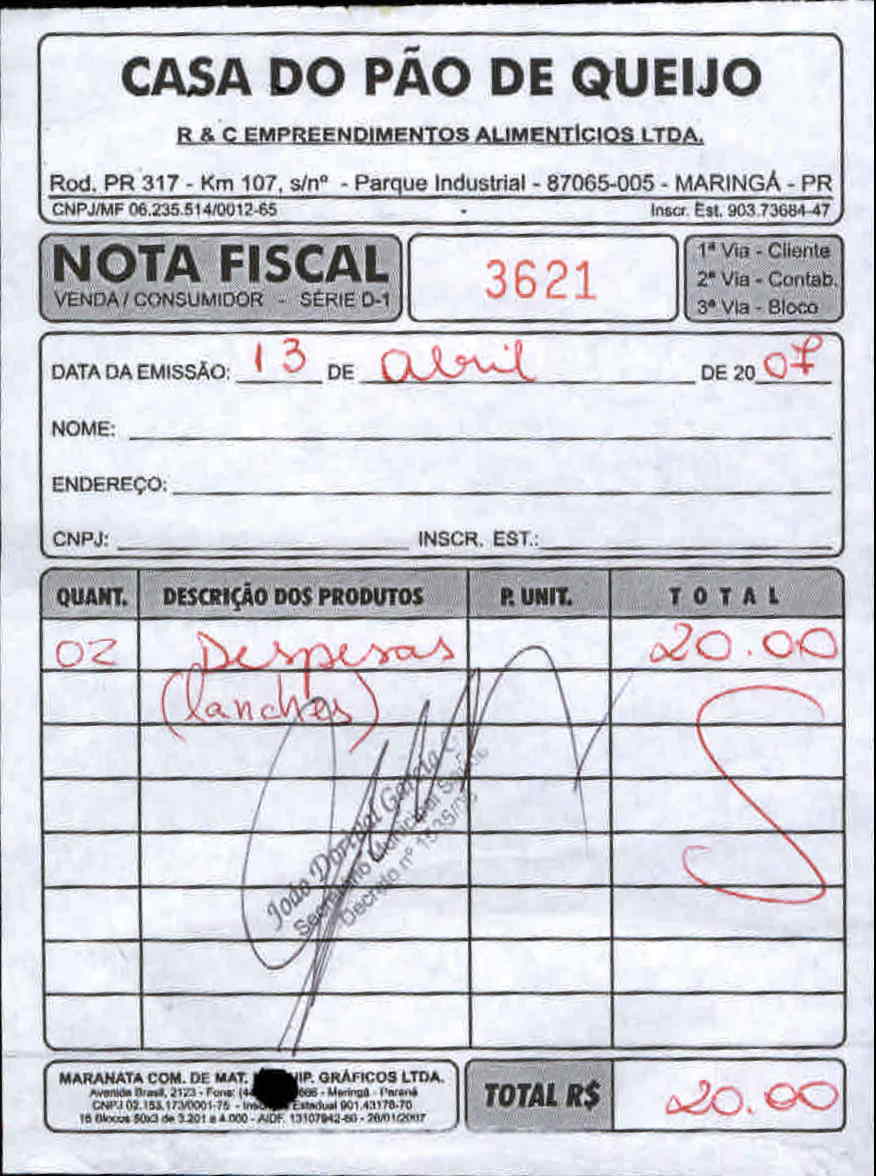 CASA DO PÃO DE QUEIJO
R & C EMPREENDIMENTOS ALIMENTÍCIOS LTDA.
Rod. PR 317 - Km 107, s/nº - Parque Industrial - 87065-005 - MARINGÁ - PR
CNPJ/MF 06.235.514/0012-65 Inscr. Est. 903.73684-47
NOTA FISCAL
VENDA / CONSUMIDOR - SÉRIE D-1
3621
1ª Via - Cliente
2ª Via - Contab.
3ª Via - Bloco
DATA DA EMISSÃO: 13 DE abril DE 2007
NOME:
ENDEREÇO:
CNPJ: INSCR. EST.:
QUANT. DESCRIÇÃO DOS PRODUTOS P. UNIT. TOTAL
02 Despesas 20.00
(lanches)
João Dorival Garcia
Secretário Municipal Saúde
Decreto nº
MARANATA COM. DE MAT. IP. GRÁFICOS LTDA.
Avenida Brasil, 2123 - Fone: 666 - Maringá - Paraná
CNPJ 02.153.173/0001-75 - Estadual 901.43178-70
16 Blocos 50x3 de 3.201 a 4.000 - AIDF. 13107942-60 - 26/01/2007
TOTAL R$ 20.00